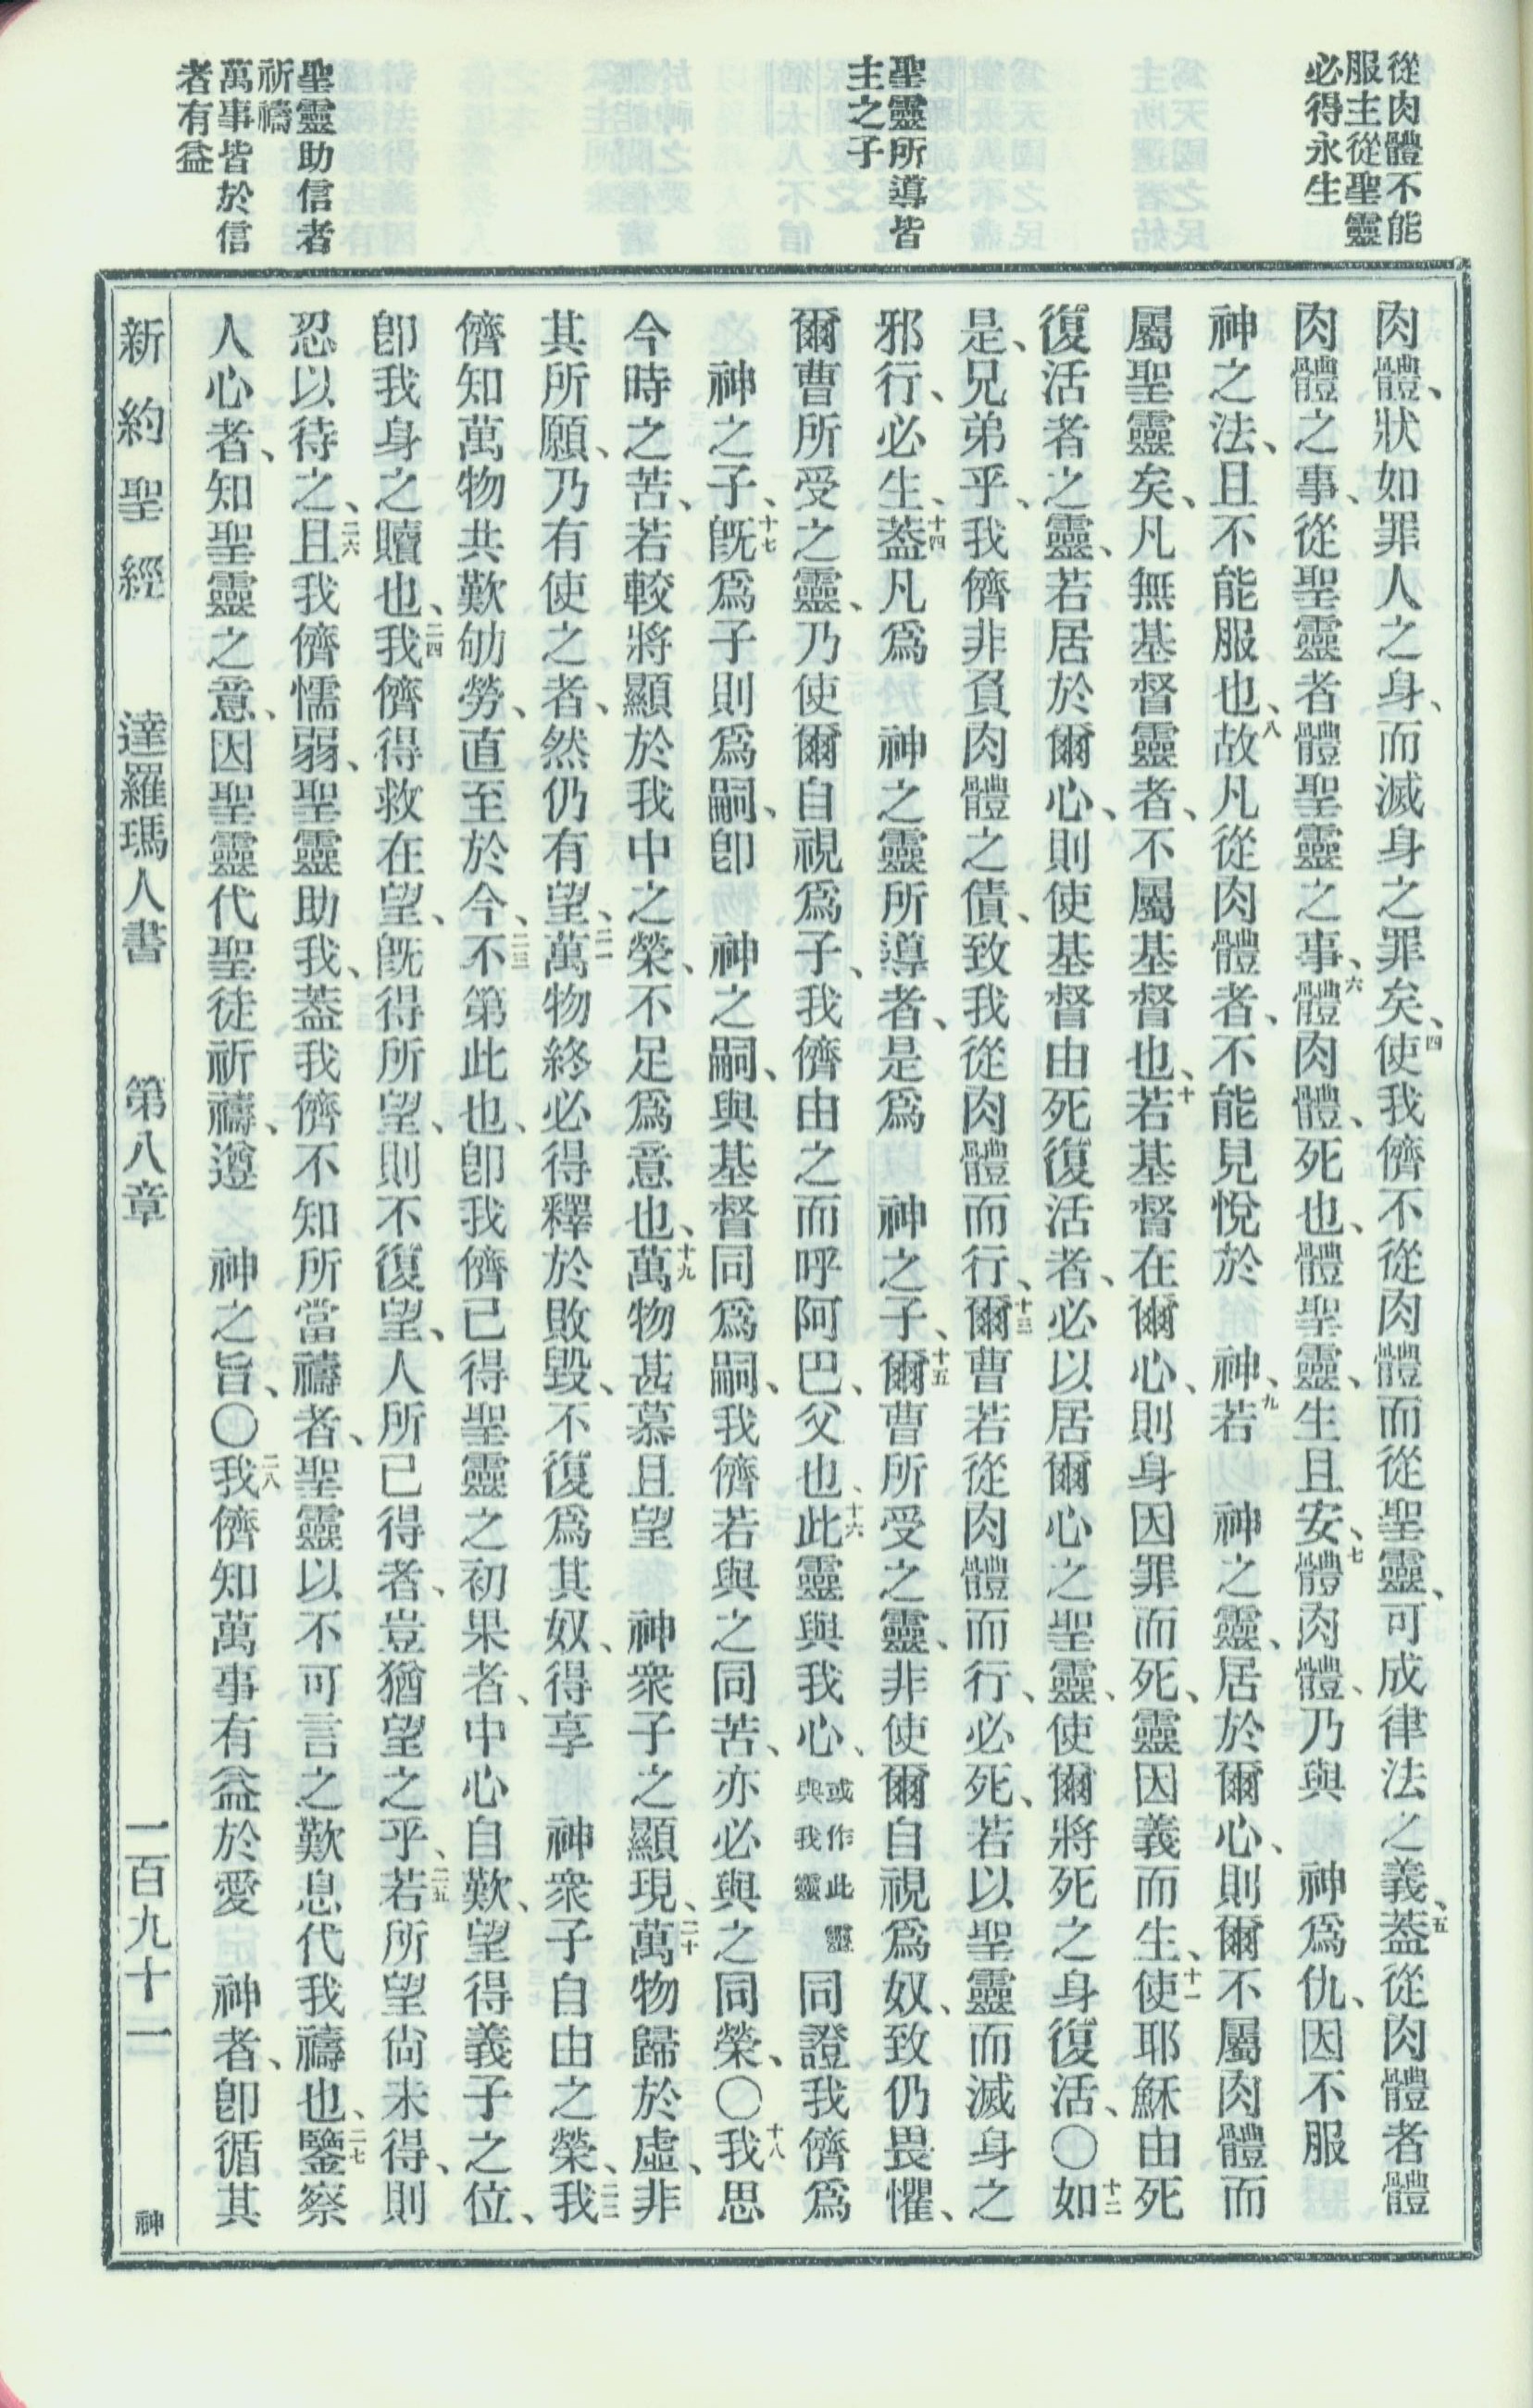 從肉體不能
服主從聖靈
必得永生
聖靈所導皆
主之子
聖靈助信者
祈禱
萬事皆於信
者有益
肉體、狀如罪人之身、而滅身之罪矣、四使我儕不從肉體而從聖靈、可成律法之義、五蓋從肉體者體
肉體之事、從聖靈者體聖靈之事、六體肉體、死也、體聖靈、生且安、七體肉體、乃與　神爲仇、因不服
神之法、且不能服也、八故凡從肉體者、不能見悅於　神、九若　神之靈、居於爾心、則爾不屬肉體而
屬聖靈矣、凡無基督靈者、不屬基督也、十若基督在爾心、則身因罪而死、靈因義而生、十一使耶穌由死
復活者之靈、若居於爾心、則使基督由死復活者、必以居爾心之聖靈、使爾將死之身復活、〇十二如
是、兄弟乎、我儕非負肉體之債、致我從肉體而行、十三爾曹若從肉體而行、必死、若以聖靈而滅身之
邪行、必生、十四蓋凡爲　神之靈所導者、是爲　神之子、十五爾曹所受之靈、非使爾自視爲奴、致仍畏懼、
爾曹所受之靈、乃使爾自視爲子、我儕由之而呼阿巴、父也、十六此靈與我心、或作此靈與我靈同證我儕爲
神之子、十七旣爲子則爲嗣、卽　神之嗣、與基督同爲嗣、我儕若與之同苦、亦必與之同榮、〇十八我思
今時之苦、若較將顯於我中之榮、不足爲意也、十九萬物甚慕且望　神衆子之顯現、二十萬物歸於虛、非
其所願、乃有使之者、然仍有望、二一萬物終必得釋於敗毀、不復爲其奴、得享　神衆子自由之榮、二二我
儕知萬物共歎劬勞、直至於今、二三不第此也、卽我儕已得聖靈之初果者、中心自歎、望得義子之位、
卽我身之贖也、二四我儕得救在望、旣得所望、則不復望、人所已得者、豈猶望之乎、二五若所望尙未得、則
忍以待之、二六且我儕懦弱、聖靈助我、蓋我儕不知所當禱者、聖靈以不可言之歎息代我禱也、二七鑒察
人心者、知聖靈之意、因聖靈代聖徒祈禱、遵　神之旨、〇二八我儕知萬事有益於愛　神者、卽循其
新約聖經　達羅瑪人書　第八章　一百九十二　神